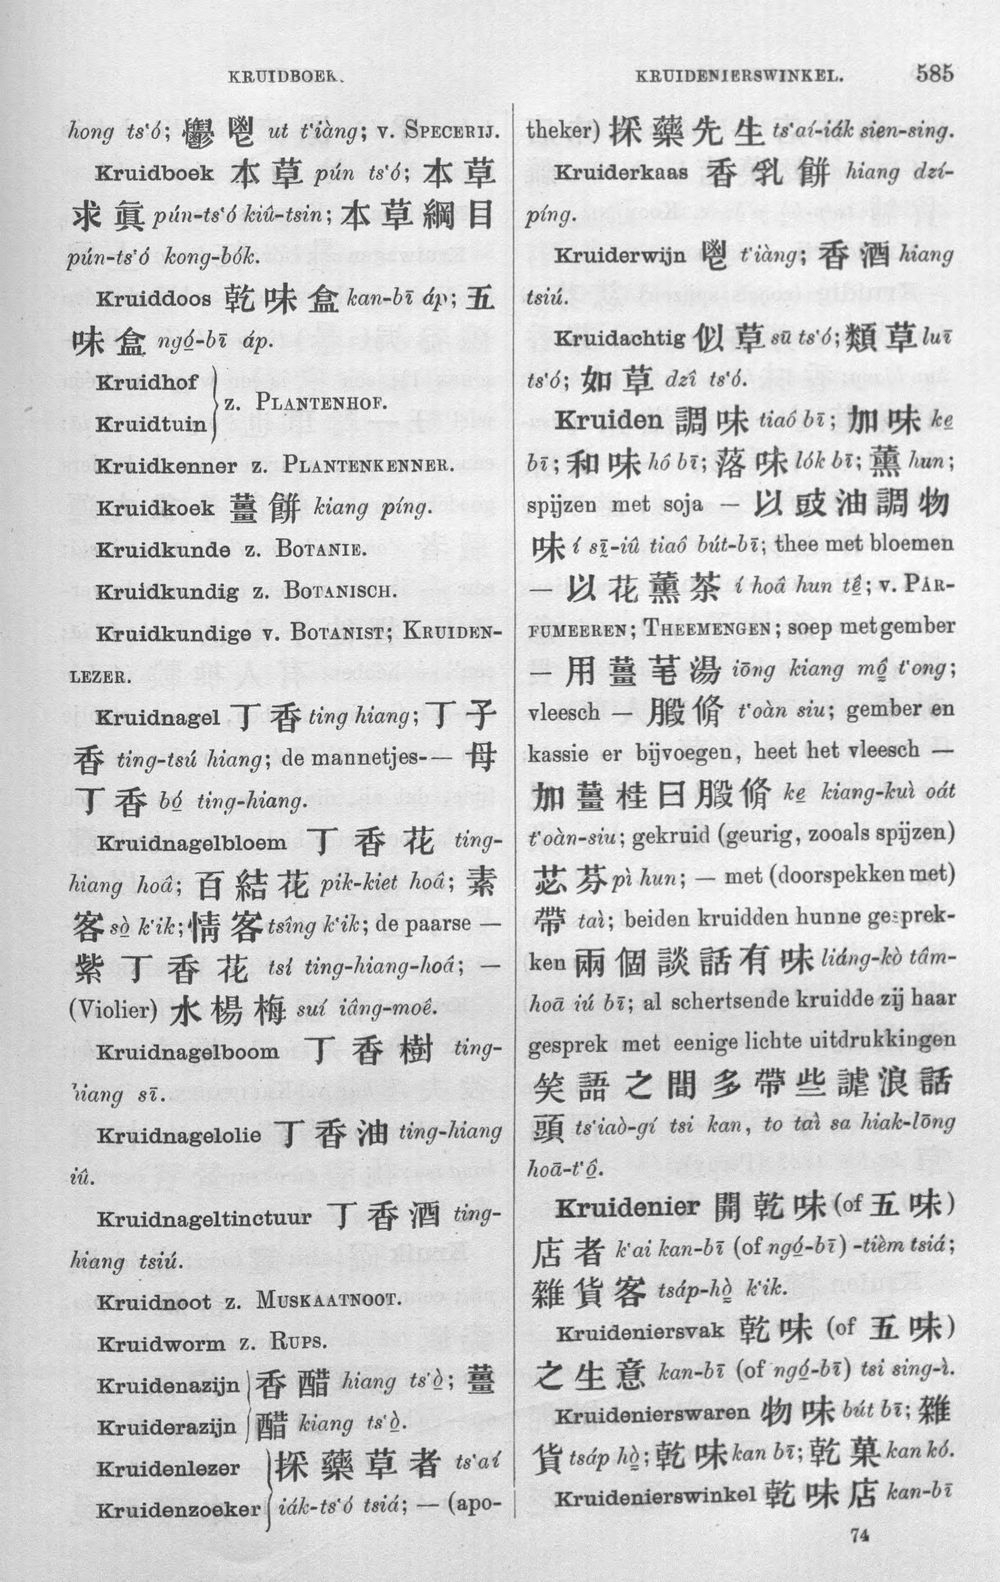 KRUIDBOEK.
KRUIDENIERSWINKEL. 585
hong ts'ó; 鬱鬯 ut t'iàng; v. SPECERIJ.
Kruidboek 本草 pún ts'ó; 本草
求眞 pún-ts'ó kiû-tsin; 本草綱目
pún-ts'ó kong-bók.
Kruiddoos 乾味盒 kan-bī áp; 五
味盒 ngó-bī áp.
Kruidhof
Kruidtuin } z. PLANTENHOF.
Kruidkenner z. PLANTENKENNER.
Kruidkoek 薑餅 kiang píng.
Kruidkunde z. BOTANIE.
Kruidkundig z. BOTANISCH.
Kruidkundige v. BOTANIST; KRUIDEN-
LEZER.
Kruidnagel 丁香 ting hiang; 丁子
香 ting-tsú hiang; de mannetjes-— 母
丁香 bó ting-hiang.
Kruidnagelbloem 丁香花 ting-
hiang hoâ; 百結花 pik-kiet hoâ; 素
客 sò k'ik; 情客 tsîng k'ik; de paarse —
紫丁香花 tsí ting-hiang-hoâ; —
(Violier) 水楊梅 suí iâng-moê.
Kruidnagelboom 丁香樹 ting-
hiang sī.
Kruidnagelolie 丁香油 ting-hiang
iû.
Kruidnageltinctuur 丁香酒 ting-
hiang tsiú.
Kruidnoot z. MUSKAATNOOT.
Kruidworm z. RUPS.
Kruidenazijn } 香醋 hiang ts'ò; 薑
Kruiderazijn } 醋 kiang ts'ò.
Kruidenlezer } 採藥草者 ts'aí
Kruidenzoeker } iák-ts'ó tsiá; — (apo-
theker) 採藥先生 ts'aí-iák sien-sing.
Kruiderkaas 香乳餅 hiang dzí-
píng.
Kruiderwijn 鬯 t'iàng; 香酒 hiang
tsiú.
Kruidachtig 似草 sū ts'ó; 類草 luī
ts'ó; 如草 dzî ts'ó.
Kruiden 調味 tiaô bī; 加味 ke
bī; 和味 hô bī; 落味 lók bī; 薰 hun;
spijzen met soja — 以豉油調物
味 í sī-iû tiaô bút-bī; thee met bloemen
— 以花薰茶 í hoâ hun tê; v. PAR-
FUMEEREN; THEEMENGEN; soep met gember
— 用薑芼湯 iōng kiang mô t'ong;
vleesch — 腶脩 t'oàn siu; gember en
kassie er bijvoegen, heet het vleesch —
加薑桂曰腶脩 ke kiang-kuì oát
t'oàn-siu; gekruid (geurig, zooals spijzen)
苾芬 pì hun; — met (doorspekken met)
帶 taì; beiden kruidden hunne gesprek-
ken 兩個談話有味 liáng-kò tâm-
hoā iú bī; al schertsende kruidde zij haar
gesprek met eenige lichte uitdrukkingen
笑語之間多帶些謔浪話
頭 ts'iaò-gí tsi kan, to taì sa hiak-lōng
hoā-t'ô.
Kruidenier 開乾味 (of 五味)
店者 k'ai kan-bī (of ngó-bī) -tièm tsiá;
雜貨客 tsáp-hò k'ik.
Kruideniersvak 乾味 (of 五味)
之生意 kan-bī (of ngó-bī) tsi sing-ì.
Kruidenierswaren 物味 bút bī; 雜
貨 tsáp hò; 乾味 kan bī; 乾菓 kan kó.
Kruidenierswinkel 乾味店 kan-bī
74